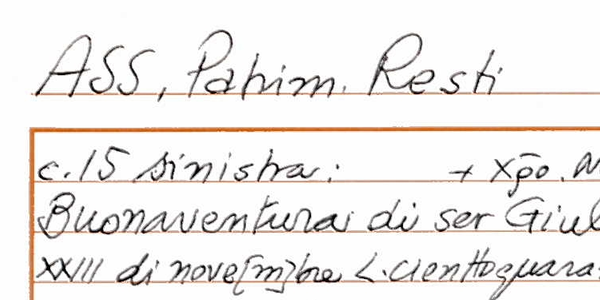 ASS, Patrim. Resti
c. 15 sinistra: + Xp̄o. M
Buonaventura di ser Giul
XXIII di nove[m]bre L. cienttoquara